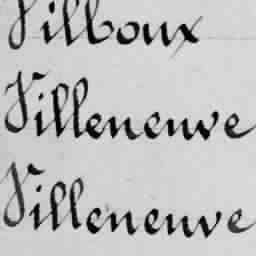 Vilboux
Villeneuve
Villeneuve